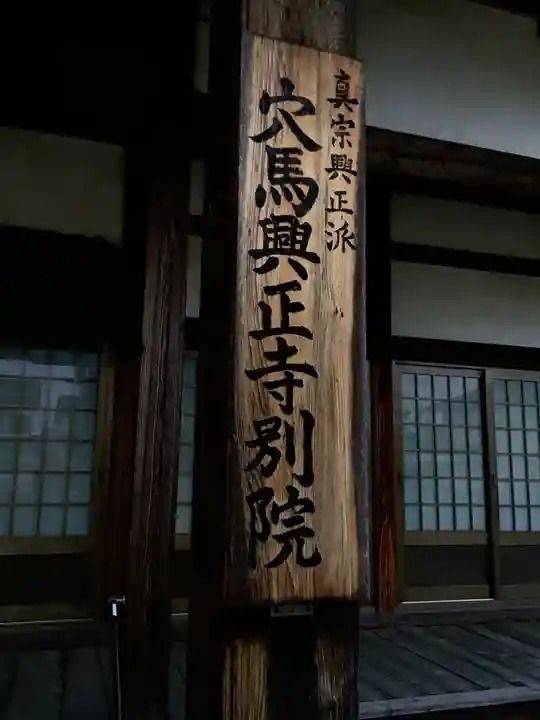 真宗興正派
穴馬興正寺別院